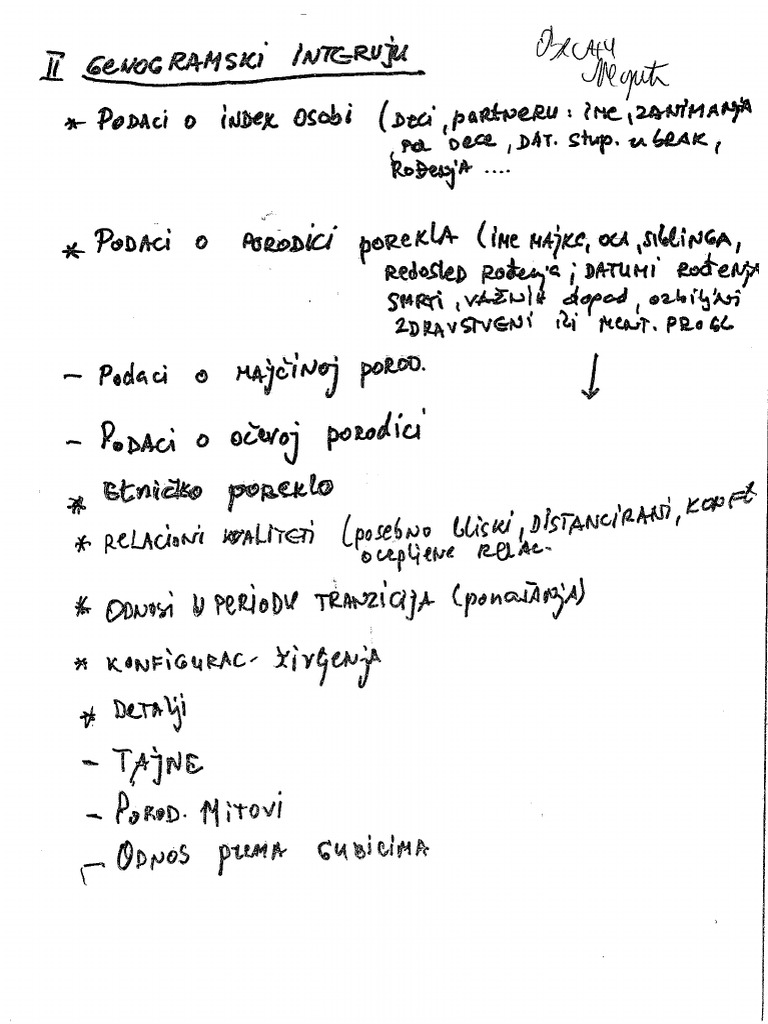 II GENOGRAMSKI INTERVJU
* PODACI O INDEX OSOBI (DECI, PARTNERU: IME, ZANIMANJA
DECE, DAT. STUP. U BRAK,
ROĐENJA ....
* PODACI O PORODICI POREKLA (IME MAJKE, OCA, SIBLINGA,
REDOSLED ROĐENJA; DATUMI ROĐENJA
SMRTI, VAŽNIH DOGAĐ, OZBILJNI
ZDRAVSTVENI ILI MENT. PROBL
- PODACI O MAJČINOJ POROD.
↓
- PODACI O OČEVOJ PORODICI
* ETNIČKO POREKLO
* RELACIONI KVALITETI (POSEBNO BLISKI, DISTANCIRANI, KONFL
OCEPLJENE RELAC.
* ODNOSI U PERIODU TRANZICIJA (PONAŠANJA)
* KONFIGURAC- ŽIVLJENJA
* DETALJI
- TAJNE
- POROD. MITOVI
- ODNOS PREMA GUBICIMA